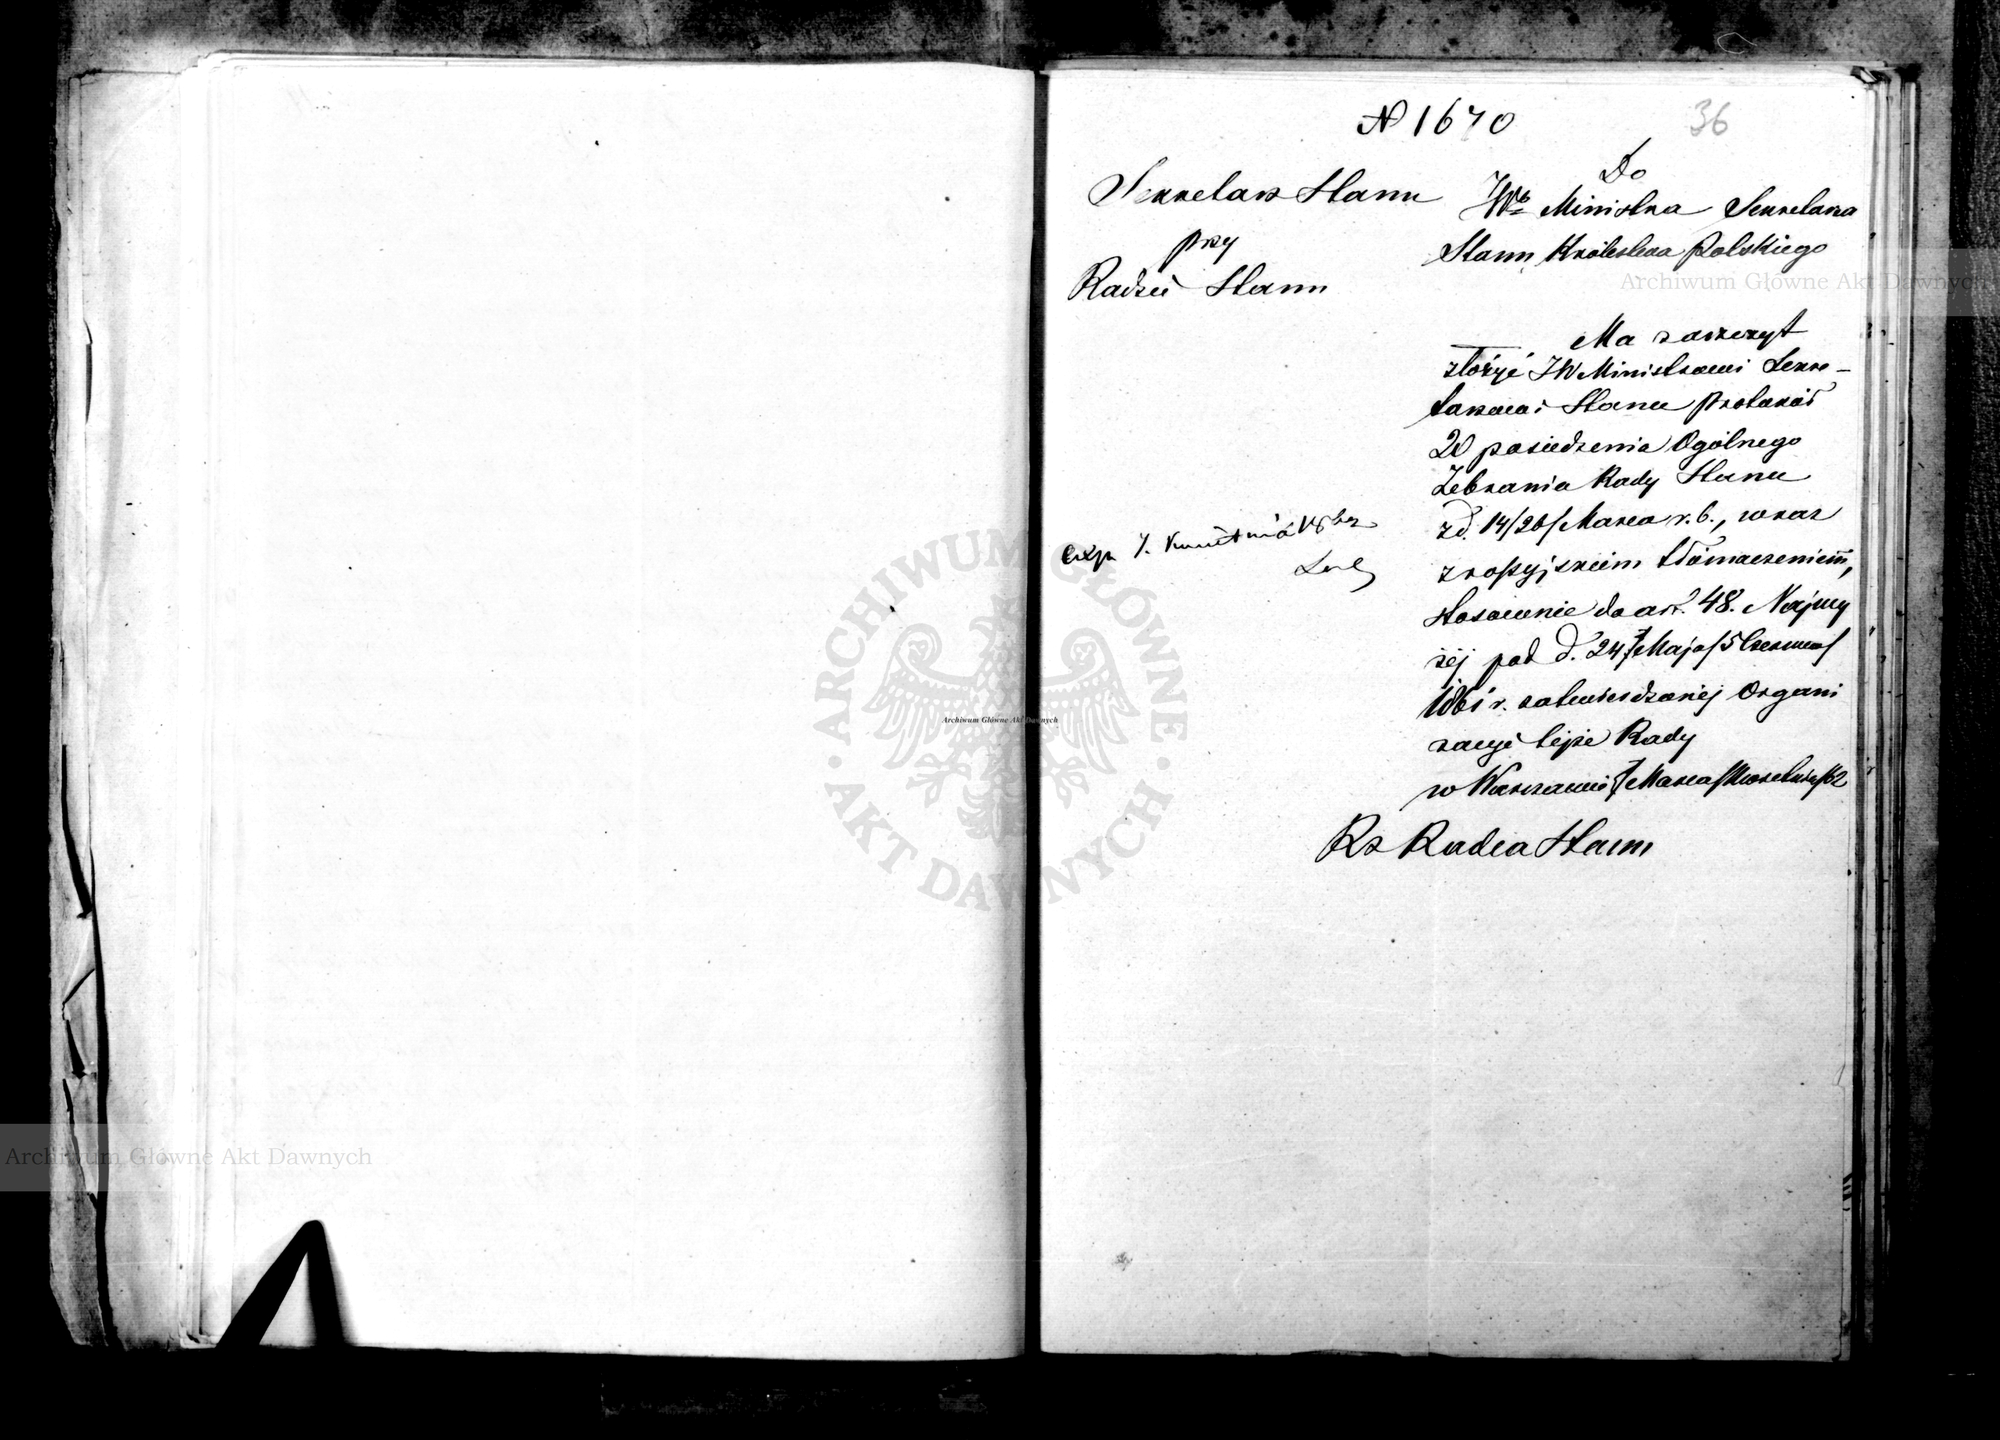 N 1670
36
Sekretarz Stanu
przy
Radzie Stanu
Do
JWo Ministra Sekretarza
Stanu Królestwa Polskiego
Ma zaszczyt
złożyć JW Ministrowi Sekre-
tarzowi Stanu protokół
20 posiedzenia Ogólnego
Zebrania Rady Stanu
z d. 14/26/ Marca r. b., wraz
z rossyjskiem tłómaczeniem,
stosownie do art. 48. Najwy
żéj pod d. 24 Maja/5 Czerwca/
1861 r. zatwierdzonéj Organi
zacyi téjże Rady
w Warszawie Marca/Kwietnia/62
Rz Radca Stanu
exp 7. Kwietnia 1862
Archiwum Główne Akt Dawnych
Archiwum Główne Akt Dawnych
Archiwum Główne Akt Dawnych
ARCHIWUM GŁÓWNE
AKT DAWNYCH